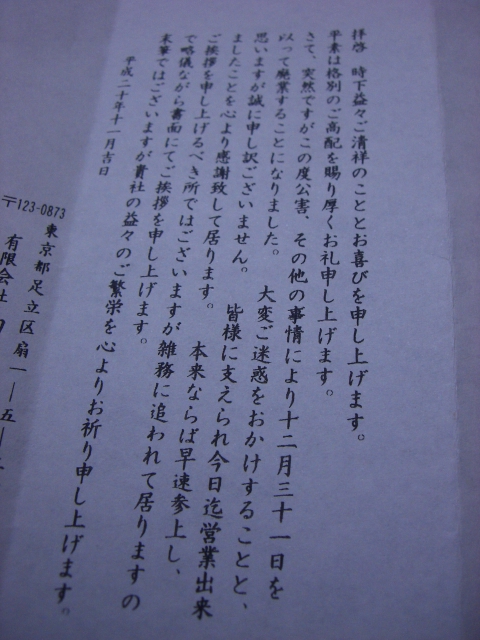 拝啓　時下益々ご清祥のこととお喜びを申し上げます。
平素は格別のご高配を賜り厚くお礼申し上げます。
さて、突然ですがこの度公害、その他の事情により十二月三十一日を
以って廃業することになりました。　大変ご迷惑をおかけすることと、
思いますが誠に申し訳ございません。　皆様に支えられ今日迄営業出来
ましたことを心より感謝致して居ります。　本来ならば早速参上し、
ご挨拶を申し上げるべき所ではございますが雑務に追われて居りますの
で略儀ながら書面にてご挨拶を申し上げます。
末筆ではございますが貴社の益々のご繁栄を心よりお祈り申し上げます。
平成二十年十一月吉日
〒123-0873
東京都足立区扇一ー五ー
有限会社